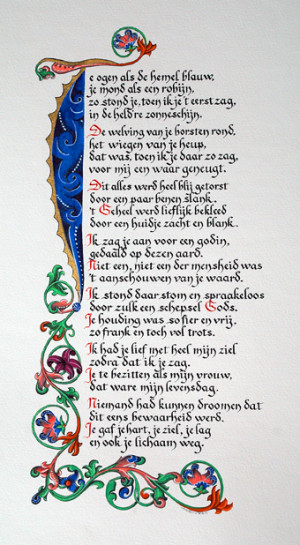 Je ogen als de hemel blauw,
je mond als een robijn,
zo stond je, toen ik je 't eerst zag,
in de held're zonneschijn.
De welving van je borsten rond,
het wiegen van je heup,
dat was, toen ik je daar zo zag,
voor mij een waar geneugt.
Dit alles werd heel blij getorst
door een paar benen slank.
't Geheel werd lieflijk bekleed
door een huidje zacht en blank.
Ik zag je aan voor een godin,
gedaald op dezen aard.
Niet een, niet een der mensheid was
't aanschouwen van je waard.
Ik stond daar stom en spraakeloos
door zulk een schepsel Gods.
Je houding was so fier en vrij,
zo frank en toch vol trots.
Ik had je lief met heel mijn ziel
zodra dat ik je zag.
Je te bezitten als mijn vrouw,
dat ware mijn levensdag.
Niemand had kunnen droomen dat
dit eens bewaarheid werd.
Je gaf je hart, je ziel, je lag
en ook je lichaam weg.